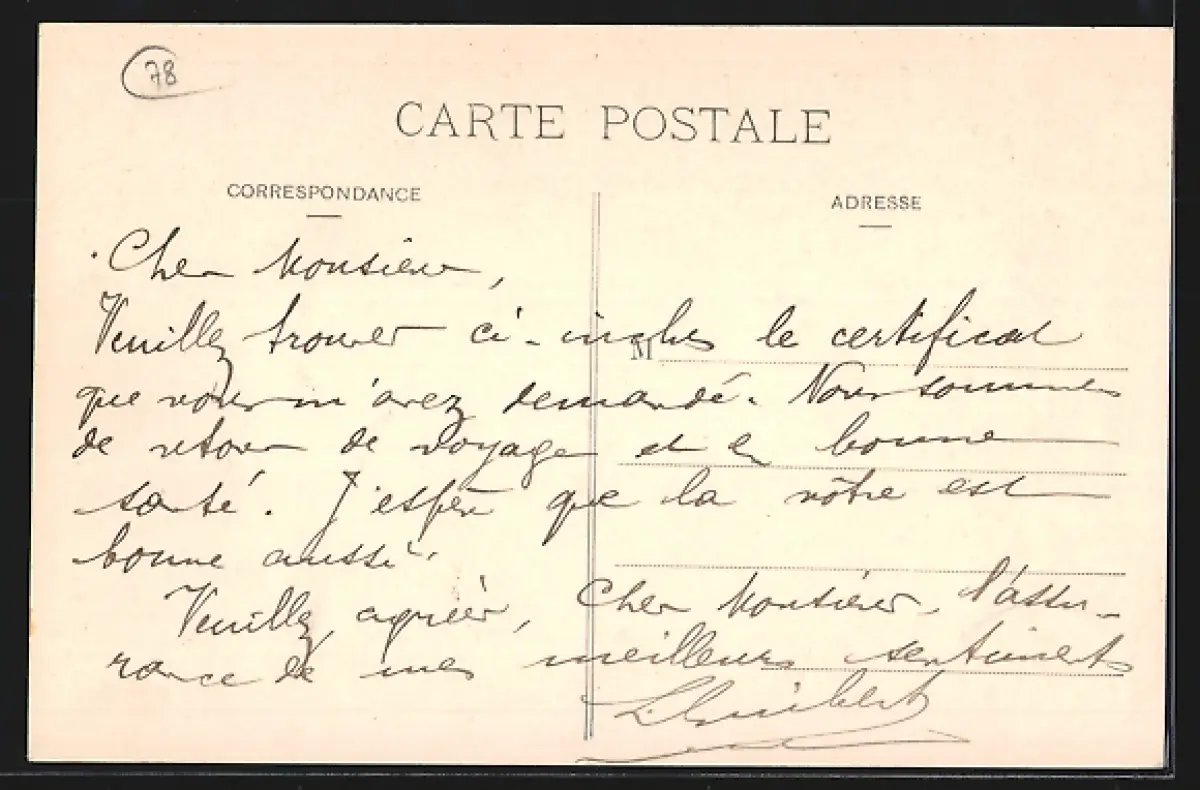 78
CARTE POSTALE
CORRESPONDANCE
ADRESSE
Cher Monsieur,
Veuillez trouver ci-inclus le certificat
M
que vous m'avez demandé. Nous sommes
de retour de voyage et en bonne
santé. J'espère que la vôtre est
bonne aussi.
Veuillez agréer, Cher Monsieur, l'assu-
rance de mes meilleurs sentiments